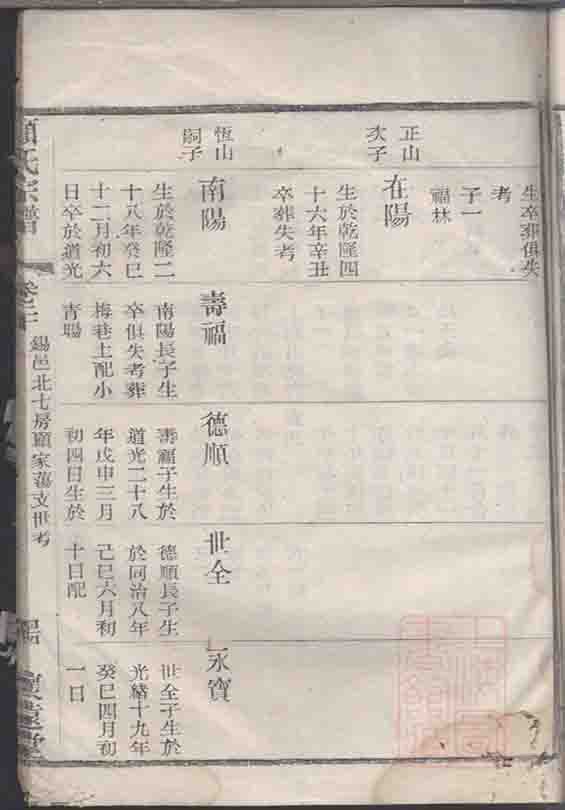 生卒葬俱失
考
子一
福林
正山
次子
在陽
生於乾隆四
十六年辛丑
卒葬失考
恆山
嗣子
南陽
生於乾隆二
十八年癸巳
十二月初六
日卒於道光
壽福
南陽長子生
卒俱失考葬
梅巷土配小
青暘
德順
壽福子生於
道光二十八
年戊申三月
初四日生於
世全
德順長子生
於同治八年
己巳六月初
十日配
永寶
世全子生於
光緒十九年
癸巳四月初
一日
顧氏宗譜
卷之
錫邑北七房顧家蕩支世考